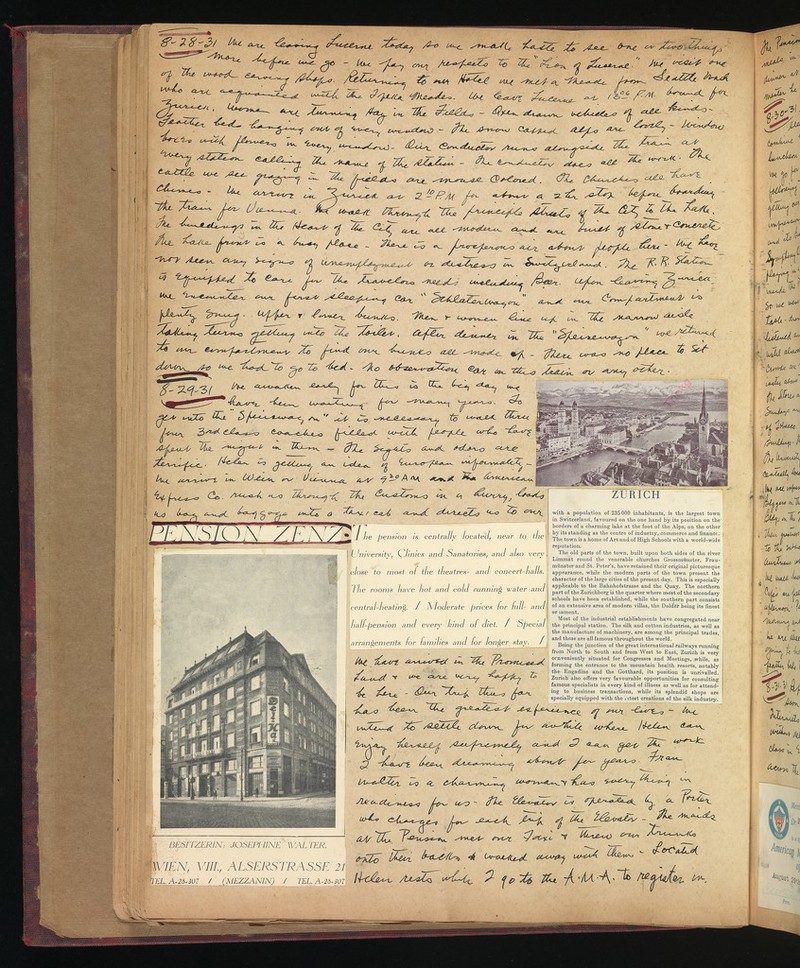 8-28-31 We are leaving Lucerne today so we make haste to see one or two things
more before we go - We pay our respects to the "Lion of Lucerne." We visit one
of the wood carving shops. Returning to our Hotel we met a Meade from Seattle Wash
who are acquainted with the Topeka Meades. We leave Lucerne at 1 06 P.M. bound for
Zurich. Women are turning Hay in the Fields - Oxen drawn vehicles of all kinds -
Feather beds hanging out of every window - The snow capped alps are lovely - Window
boxes with flowers in every window - Our Conductor runs alongside the train at
every station calling the name of the station - The conductor does all the work. The
cattle we see grazing in the fields are mouse colored. The Churches all have
chimes - We arrive in Zurich at 2 10 P.M for about a 2 hr stop before boarding
the train for Vienna. We walk through the principle streets of the City to the Lake.
The buildings in the Heart of the City are all modern and are built of stone & concrete
The Lake front is a busy place - There is a prosperous air about people here - We have
not seen any signs of unemployment or distress in Switzerland. The R.R. Station
is equipped to care for the travelers needs including Beer. Upon leaving Zurich
we encounter our first sleeping car "Schlaterwagon" and our Compartment is
plenty snug. Upper & lower bunks. Men & women line up in the narrow aisle
taking turns getting into the toilet. After dinner in the "Speisewagon" we returned
to our compartment to find our bunks all made up - There was no place to sit
down so we had to go to bed - No observation car on this train or any other.
8-29-31 We awaken early for this is the big day we
have been waiting for many years. To
get into the "Speisewagon" it is necessary to walk thru
four 3rd class coaches filled with people who have
spent the night in them - The sights and odors are
terrific. Helen is getting an idea of European informality -
We arrive in Wein or Vienna at 9 30 AM and the American
Express Co. rush us through the Customs in a hurry, loads
us bag and baggage into a taxi cab and directs us to our
PENSION ZENZ:
The pension is centrally located, near to the
University, Clinics and Sanatories, and also very
close to most of the theatres- and concert-halls.
The rooms have hot and cold running water and
central-heating. / Moderate prices for full- and
half-pension and every kind of diet. / Special
arrangements for families and for longer stay. /
ZURICH
with a population of 250000 inhabitants, is the largest town
in Switzerland, favoured on the one hand by its position on the
borders of a charming lake at the foot of the Alps, on the other
by its standing as the centre of industry, commerce and finance.
The town is a home of Art and of High Schools with a world-wide
reputation.
The old parts of the town, built upon both sides of the river
Limmat round the venerable churches Grossmünster, Frau-
münster and St. Peter's, have retained their original picturesque
appearance, while the modern parts of the town present the
character of the large cities of the present day. This is especially
applicable to the Bahnhofstrasse and the Quay. The northern
part of the Zurichberg is the quarter where most of the secondary
schools have been established, while the southern part consists
of an extensive area of modern villas, the Dolder being its finest
ornament.
Most of the industrial establishments have congregated near
the principal station. The silk and cotton industries, as well as
the manufacture of machinery, are among the principal trades,
and these are all famous throughout the world.
Being the junction of the great international railways running
from North to South and from West to East, Zurich is very
conveniently situated for Congresses and Meetings, while, as
forming the entrance to the mountain health resorts, notably
the Engadine and the Gotthard, its position is unrivalled.
Zurich also offers very favourable opportunities for consulting
famous specialists in every kind of illness as well as for attend-
ing to business transactions, while its splendid shops are
specially equipped with the latest creations of the silk industry.
We have arrived in the Promised
Land & we are very happy to
be here - Our trip thus far
has been the greatest experience of our lives - We
intend to settle down for awhile where Helen can
enjoy herself supremely and I can get the work
I have been dreaming about for years. Frau
Walter is a charming woman & has everything in
readiness for us - The Elevator is operated by a Porter
who charges for each trip of the Elevator - The maids
at the Pension met our Taxi & threw our trunks
onto their backs & walked away with them - Located
Helen rests while I go to the A.M.A. to register in.
BESITZERIN: JOSEPHINE WALTER.
WIEN, VIII., ALSERSTRASSE 21
TEL. A-28-307 / (MEZZANIN) / TEL. A-28-307